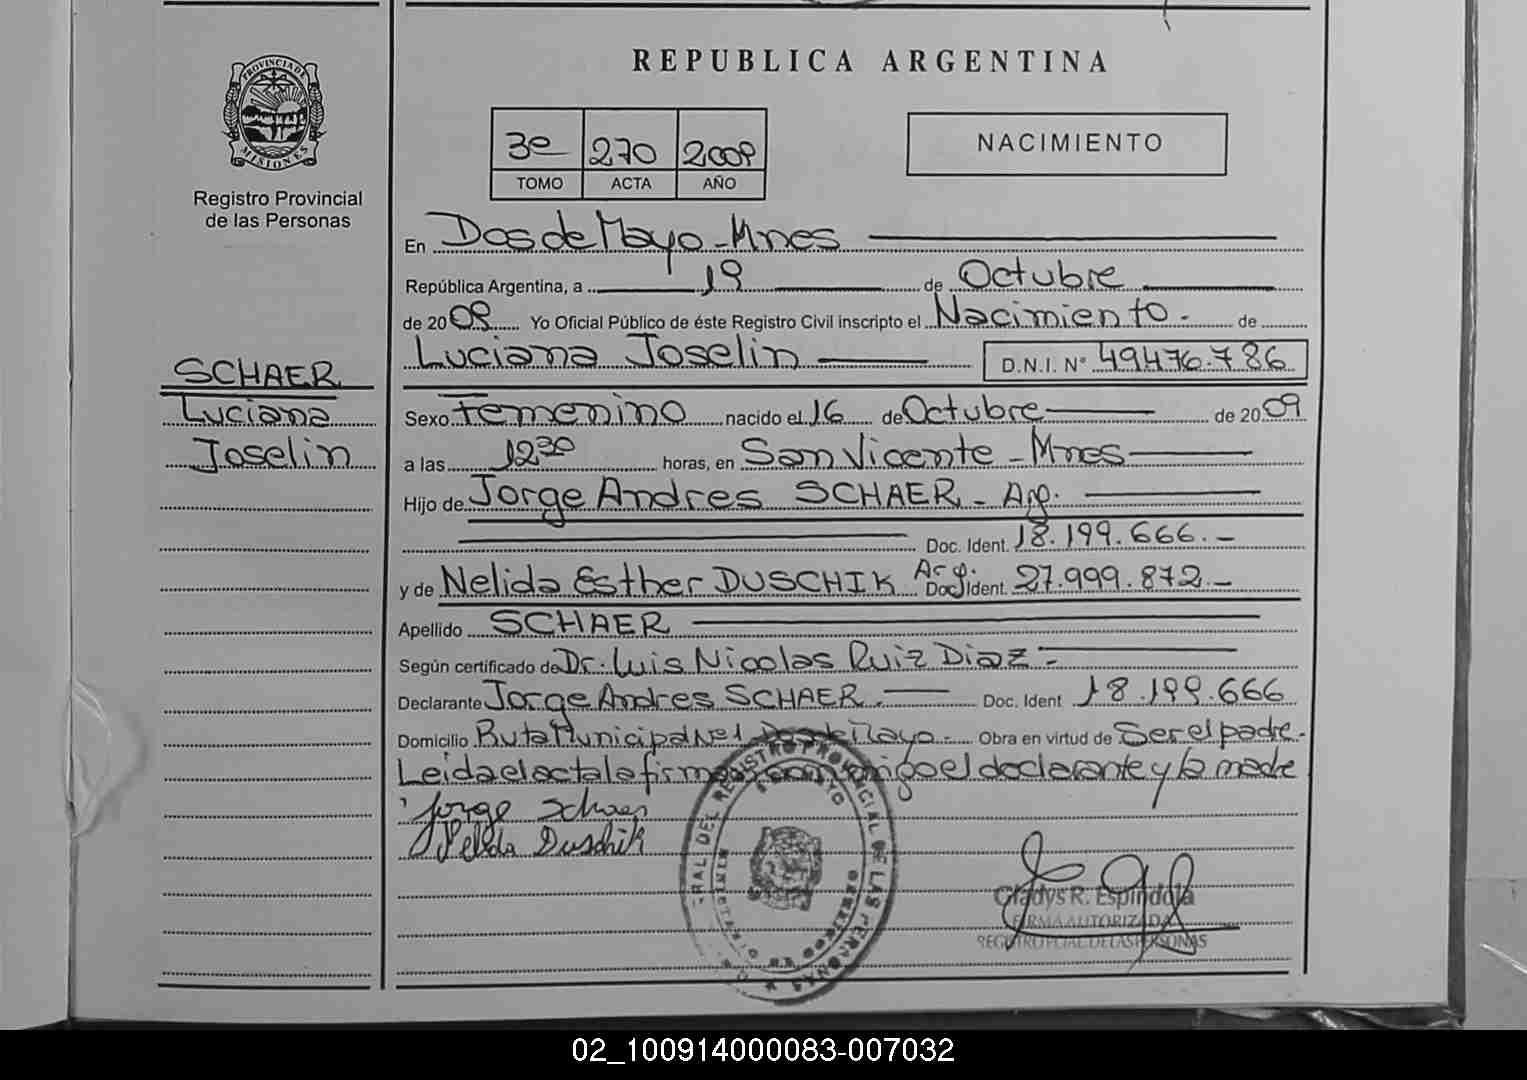 REPUBLICA ARGENTINA
PROVINCIA DE
MISIONES
Registro Provincial
de las Personas
3e 270 2009
TOMO ACTA AÑO
NACIMIENTO
En Dos de Mayo - Mnes
República Argentina, a 19 de Octubre
de 2009 Yo Oficial Público de éste Registro Civil inscripto el Nacimiento - de
Luciana Joselin D.N.I. N° 49.476.786
SCHAER
Luciana
Joselin
Sexo Femenino nacido el 16 de Octubre de 2009
a las 12 30 horas, en San Vicente - Mnes
Hijo de Jorge Andres SCHAER - Arg.
Doc. Ident. 18.199.666.-
y de Nelida Esther DUSCHIK Arg. Doc. Ident. 27.999.872.-
Apellido SCHAER
Según certificado de Dr. Luis Nicolas Ruiz Diaz -
Declarante Jorge Andres SCHAER. Doc. Ident 18.199.666
Domicilio Ruta Municipal Nº1 Dos de Mayo - Obra en virtud de Ser el padre.-
Leida el acta la firman conmigo el declarante y la madre
Jorge Schaer
Nelida Duschik
Gladys R. Espindola
FIRMA AUTORIZADA
REGISTRO PCIAL. DE LAS PERSONAS
02_100914000083-007032